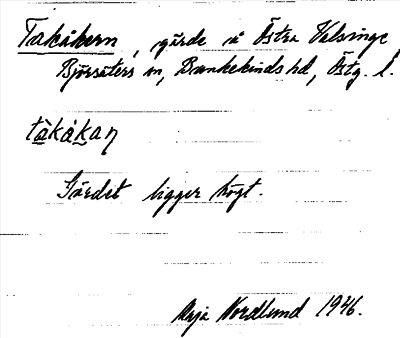 Takåkern, gärde å Östra Velsinge
Björsäters sn, Bankekinds hd, Östg. l.
tàkåkaɳ
Gärdet ligger högt.
Nordlund 1946.